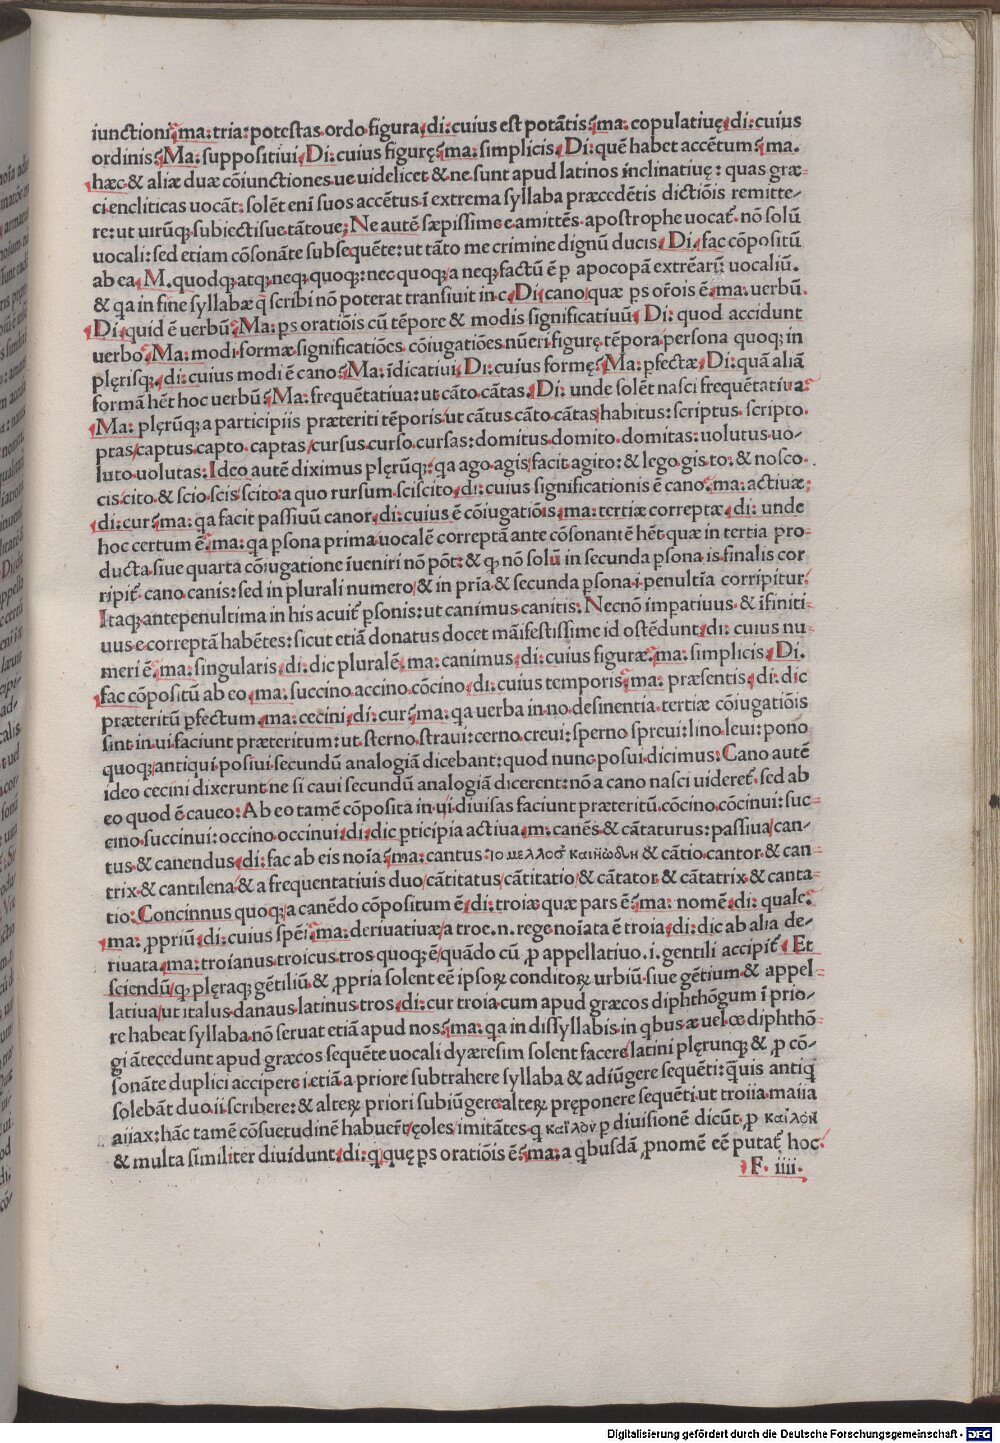 iunctioni? ma: tria: potestas ordo figura di: cuius est potãtis? ma: copulatiuę di: cuius
ordinis? Ma: suppositiui Di: cuius figurę? ma: simplicis Di: quẽ habet accẽtum? ma.
hæc & aliæ duæ cõiunctiones ue uidelicet & ne sunt apud latinos inclinatiuę: quas græ-
ci encliticas uocãt: solẽt eni suos accẽtus ĩ extrema syllaba præcedẽtis dictiõis remitte-
re: ut uirũqꝫ subiectisue tãtoue: Ne autẽ sæpissime e amittẽs apostrophe uocat᷑ nõ solũ
uocali: sed etiam cõsonãte subsequẽte: ut tãto me crimine dignũ ducis Di fac cõpositũ
ab ea M. quodqꝫ atqꝫ neqꝫ quoqꝫ: nec quoqꝫ a neqꝫ factũ ẽ p apocopã extrẽarũ uocaliũ.
& qa in fine syllabæ q scribi nõ poterat transiuit in c Di cano quæ ps or̃ois ẽ? ma: uerbũ.
Di quid ẽ uerbũ? Ma: ps oratiõis cũ tẽpore & modis significatiuũ Di: quod accidunt
uerbo? Ma: modi formæ significatiões cõiugatiões nũeri figurę tẽpora persona quoqꝫ in
plęrisqꝫ di: cuius modi ẽ cano? Ma: ĩdicatiui Di: cuius formę? Ma: pfectæ Di: quã aliã
formã hẽt hoc uerbũ? Ma: frequẽtatiua: ut cãto cãtas. Di: unde solẽt nasci frequẽtatiua?
Ma: plęrũqꝫ a participiis præteriti tẽporis ut cãtus cãto cãtas habitus: scriptus scripto.
ptas captus capto captas cursus curso cursas: domitus domito domitas: uolutus uo-
luto uolutas: Ideo autẽ diximus plęrũqꝫ: qa ago agis facit agito: & lego gis to: & nosco.
cis cito & scio scis scito a quo rursum sciscito di: cuius significationis ẽ cano? ma: actiuæ:
di: cur? ma: qa facit passiuũ canor di: cuius ẽ cõiugatiõis ma: tertiæ correptæ di: unde
hoc certum ẽ? ma: qa psona prima uocalẽ correptã ante cõsonant ẽ hẽt quæ in tertia pro-
ducta siue quarta cõiugatione ĩueniri nõ põt: & qꝫ nõ solũ in secunda psona is finalis cor
ripit᷑ cano canis: sed in plurali numero & in pria & secunda psona i penultĩa corripitur.
Itaqꝫ antepenultima in his acuit᷑ psonis: ut canimus canitis: Necnõ ĩmpatiuus & ĩfiniti-
uus e correptã habẽtes: sicut etiã donatus docet mãifestissime id ostẽdunt di: cuius nu-
meri ẽ? ma: singularis di: dic pluralẽ ma: canimus di: cuius figuræ? ma: simplicis Di.
fac cõpositũ ab eo ma: succino accino cõcino di: cuius temporis? ma: præsentis di: dic
præteritũ pfectum ma: cecini di: cur? ma: qa uerba in no desinentia tertiæ cõiugatiõis
sint in ui faciunt præteritum: ut sterno straui: cerno creui: sperno spreui: lino leui: pono
quoqꝫ antiqui posiui secundũ analogiã dicebant: quod nunc posui dicimus: Cano autẽ
ideo cecini dixerunt ne si caui secundũ analogiã dicerent: nõ a cano nasci uideret᷑ sed ab
eo quod ẽ caueo: Ab eo tamẽ cõposita in ui diuisas faciunt præteritũ cõcino cõcinui: suc-
cino succinui: occino occinui di: dic pticipia actiua m: canẽs & cãtaturus: passiua can-
tus & canendus di: fac ab eis noĩa? ma: cantus & cãtio cantor & can-
trix & cantilena & a frequentatiuis duo cãtitatus cãtitatio & cãtator & cãtatrix & canta-
tio: Concinnus quoqꝫ a canẽdo cõpositum ẽ di: troiæ quæ pars ẽ? ma: nomẽ di: quale?
ma: ppriũ di: cuius spẽi? ma: deriuatiuæ a troe.n. rege noĩata ẽ troia di: dic ab alia de-
riuata ma: troianus troicus tros quoqꝫ ẽ quãdo cũ p appellatiuo .i. gentili accipit᷑ Et
sciendũ qꝫ plęraqꝫ gẽtiliũ & ppria solent eẽ ipsoꝝ conditoꝝ urbiũ siue gẽtium & appel-
latiua ut italus danaus latinus tros di: cur troia cum apud græcos diphthõgum ĩ prio-
re habeat syllaba nõ seruat etiã apud nos? ma: qa in dissyllabis in qbus æ uel œ diphthõ-
gi ãtecedunt apud græcos sequẽte uocali dyæresim solent facere latini plęrunqꝫ & p cõ-
sonãte duplici accipere i etiã a priore subtrahere syllaba & adiũgere sequẽti: quis antiq
solebãt duo ii scribere: & alteꝝ priori subiũgere alteꝝ pręponere sequẽti ut troiia maiia
aiiax: hãc tamẽ cõsuetudinẽ habuer̃t ęoles imitãtes q καϊλον p diuisionẽ dicũt p καϊλον
& multa similiter diuidunt di: q quę ps oratiõis ẽ? ma: a qbusdã pnomẽ eẽ putat᷑ hoc.
F. iiii.
Digitalisierung gefördert durch die Deutsche Forschungsgemeinschaft - DFG